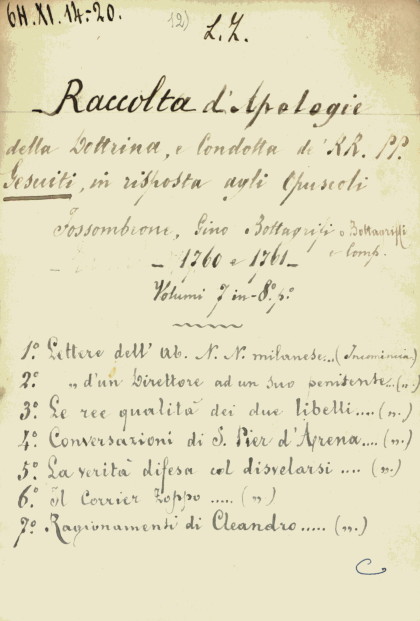 6H.XI.14-20.
12)
L.Z.
Raccolta d'Apologie
della Dottrina, e Condotta de' RR. PP.
Gesuiti, in risposta agli Opuscoli
Fossombrone, Gino Bottagrisi o Bottagriffi
e Comp.
- 1760 e 1761 -
Volumi 7 in-8.º p.º
1º Lettere dell'Ab. N. N. milanese... (Incomincia.)
2.º „ d'un Direttore ad un suo penitente... („.)
3.º Le ree qualità dei due libelli.... („.)
4.º Conversazioni di S. Pier d'Arena.... („.)
5.º La verità difesa col disvelarsi .... („.)
6.º Il Corrier Zoppo ..... („)
7.º Ragionamenti di Cleandro..... („.)
C